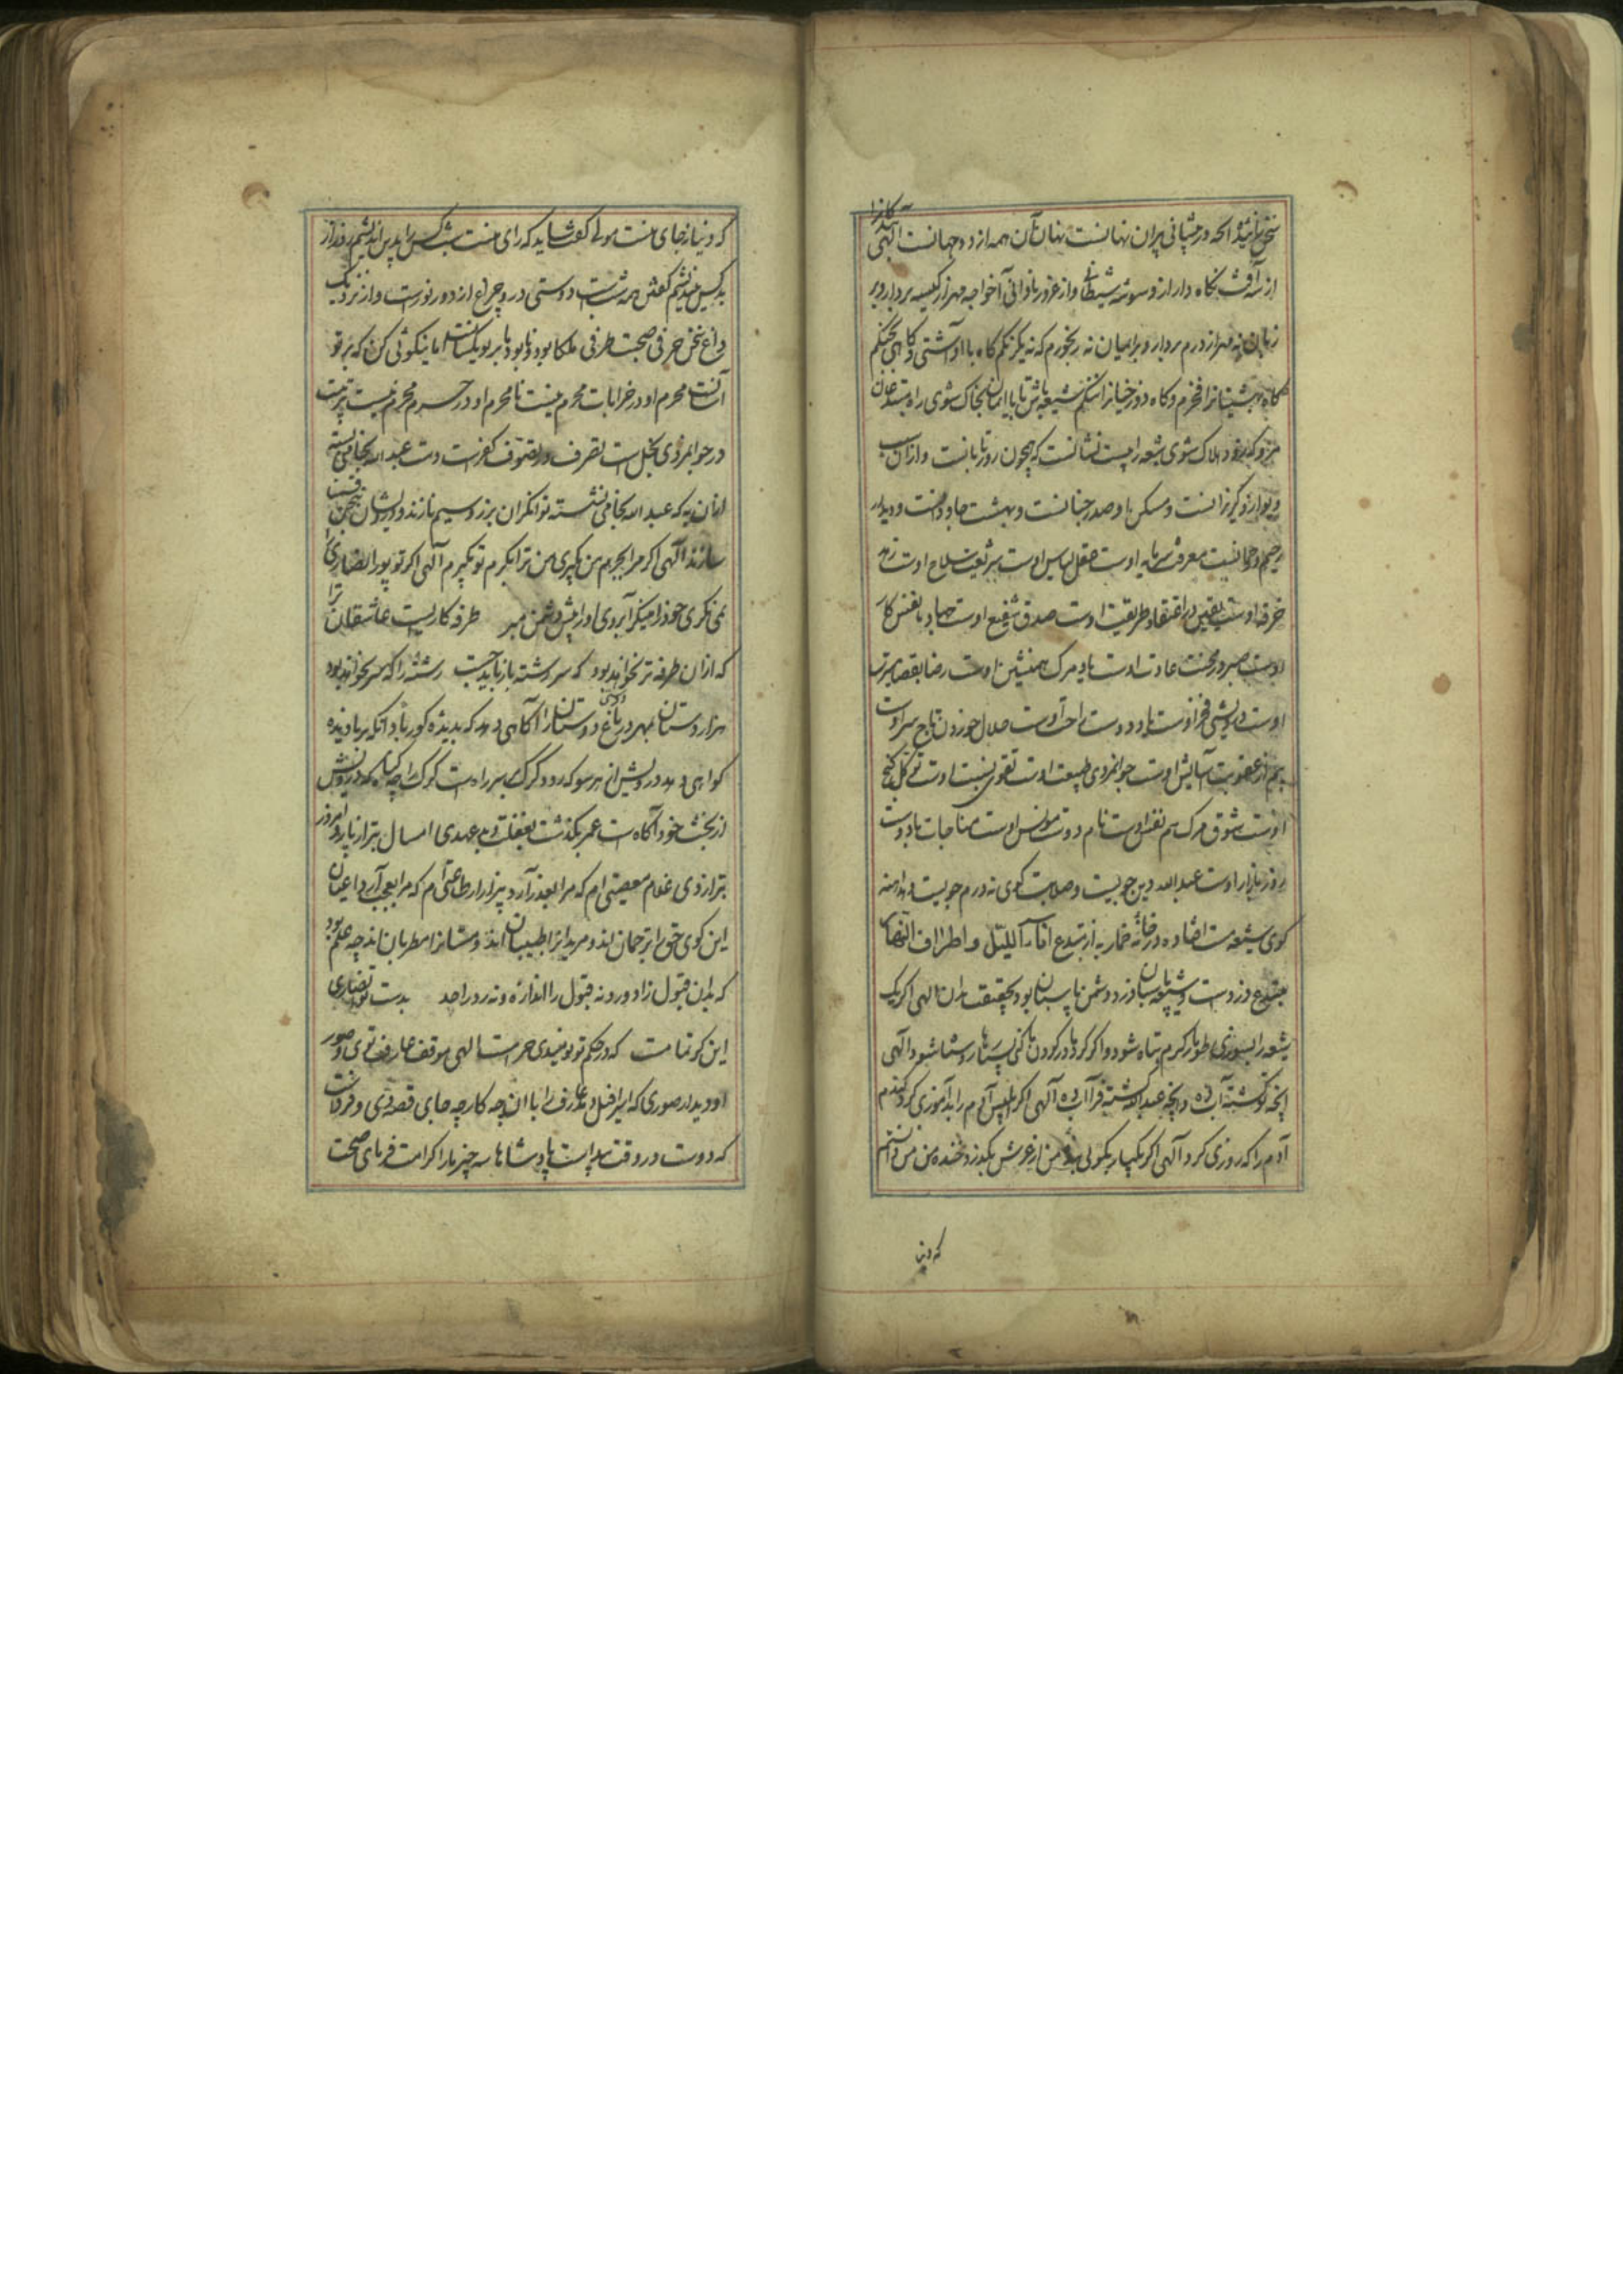 آنچه در پیشانی پیران نهانست نهان آن همه از دو جهانست الهی
از سه آفت نگاه دار از وسوسه شیطانی و از غرور نادانی آخواجه هزار کیسه بردار و بر
زبان نه هزار درم بردار و بر میان نه رنجورم که نه یکرنگم گاه با او آشتی و گاهی بجنگم
گاه بهشتیانرا فخرم و گاه دوزخیانرا ننگم شیعه باش تا با ایمان بخاک شوی راه مبتدعان
مرو که زود هلاک شوی شیعه را چیست نشانست که همچون روز تابانست و از آن
دیوار گریزانست و مسکن او صدر جنانست و بهشت جاودانست و دیدار
رحیم و رحمانست معرفت سرمایه اوست عقل لباس اوست شریعت سلاح اوست زهد
خرقه اوست یقین اعتقاد طریقت اوست صدق شفیع اوست جهاد با نفس کار
اوست صبر در محنت عادت اوست یاد مرگ همنشین اوست رضا بقضا مرتبت
اوست درویشی فخر اوست یاد دوست راحت اوست حلال خوردن تاج سر اوست
بیم از عقوبت آسایش اوست جوانمردی طبیعت اوست تقوی نسبت اوست توکل گنج
اوست شوق مرگ هم نفس اوست نام دوست مونس اوست مناجات با دوست
روز بازار اوست عبد الله دین جوییست و صلابت گوی نه درم جوییست
گوی شیعه مست افتاده در خانه خمار به از مبتدع اناء اللیل و اطراف النهار
مبتدع دزدست و شیعه پاسبان دزد دشمن پاسبان بود بحقیقت بدان الهی اگر یک
شیعه را بسوزی طومار کرم تباه شود و اگر کردها در گردن ما کنی سپیدها سیاه شود الهی
آنچه تو کشتهٔ آب ده و آنچه عبد الله کشته فرا آب ده الهی اگر ابلیس آدم را بدآموزی کرد گندم
آدم را که روزی کرد الهی اگر یکبار بگوئی بنده من از عرش بگذرد خنده من من دانستم
که دنیا
که دنیا نه جای منست مولی گفت شاید که رای منست شب کس را بد پس اندیشم روز از
بد کس نیندیشم گفتن همه شب است دوستی در و چراغ از دور نورست و از نزدیک
داغ سخن حرفی صحبت طرفی ملکا بود و نابود ما بر تو یکسانست اما نیکوئی کن که بر تو
آسانست محرم او در خرابات محرم نیست نامحرم او در حرم محرم نیست تربیت
در جوانمردی بخل است تصرف در تصوف کفرست دست عبد الله بجائی بسته
از آن به که عبد الله بجائی نشسته توانگران بزر و سیم نازند و درویشان بنحن قسمنا
سازند الهی اگر مرا بجرم من بگیری من ترا بکرم تو بگیرم الهی اگر تو پور انصاری را
نمی نگری خود را می نگر آبروی او را پیش دشمن مبر طرفه کاریست عاشقان ترا
که از آن طرفه تر نخواهد بود که سر رشته باز باید جست رشتهٔ را که سر نخواهد بود
هزار دستان بهر در باغ دوستی دوستان را آگاهی دهد که بدیدهٔ کور باد آنکه بر نادیده
گواهی دهد درویش از هر سو که رود گرگ بر سر راهست گرگ را چه گناه که درویش
از بخت خود آگاهست عمر بگذشت بغفلت و بدعهدی امسال بتر از پار و امروز
بتر از دی غلام معصیتی ام که مرا بعذر آرد بیزار از طاعتی ام که مرا بعجب آرد داعیان
این کوی حق را ترجمان اند و مریدانرا طبیبان اند و مستانرا مطربان اند چه علم بود
که بدان قبول زاد و رد نه قبول را اندازه و نه رد را حد بدست تو انصاری
این کرتمامست که در حکم تو نومیدی حرامست الهی موقف عارف توی و صور
او دیدار صوری که اسرافیل دمد عارف را با آن چه کار چه جای قصه دی و فرداست
که دوست در وقت پیداست پادشاها سه چیز ما را کرامت فرمای صحت